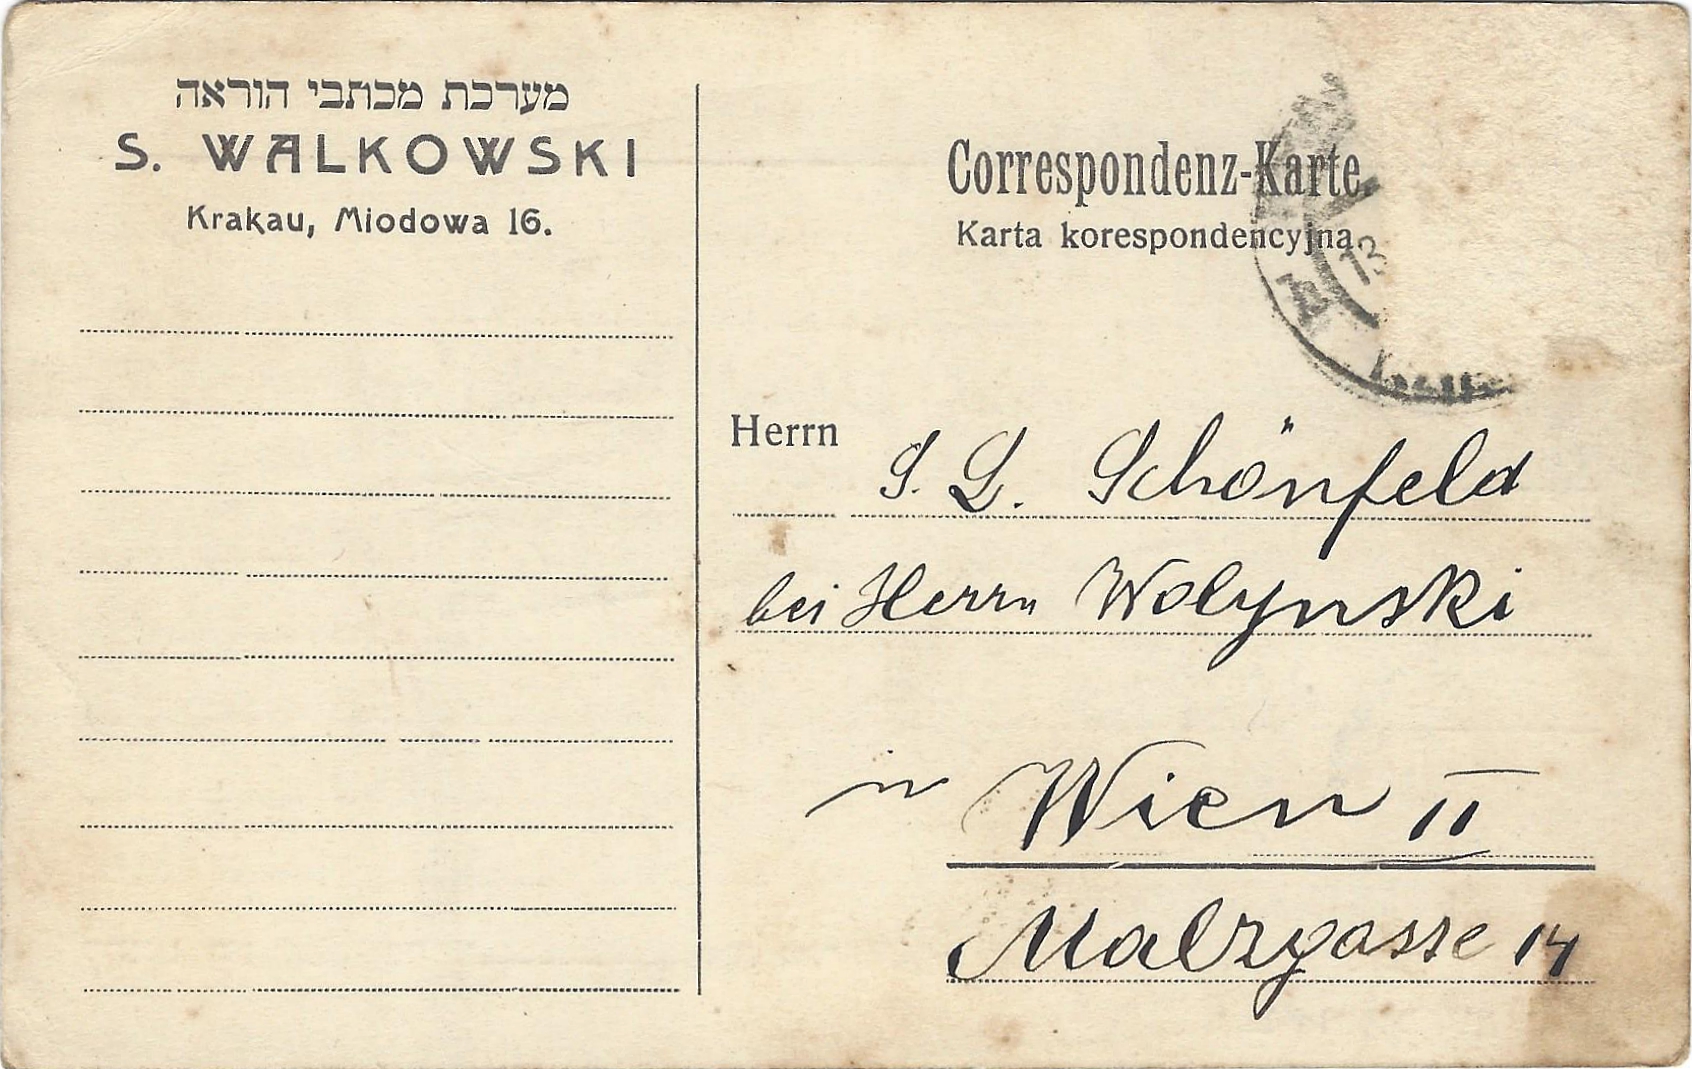 מערכת מכתבי הוראה
S. WALKOWSKI
Krakau, Miodowa 16.
Correspondenz-Karte
Karta korespondencyjna
13
Herrn
S. L. Schönfeld
bei Herrn Wolynski
in Wien II
Malzgasse 14